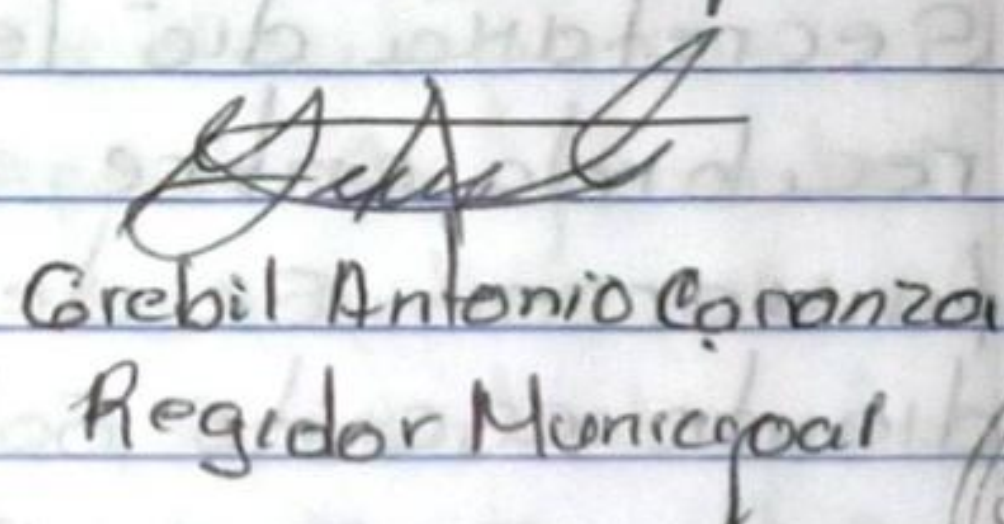 Grebil Antonio Caranza
Regidor Municipal